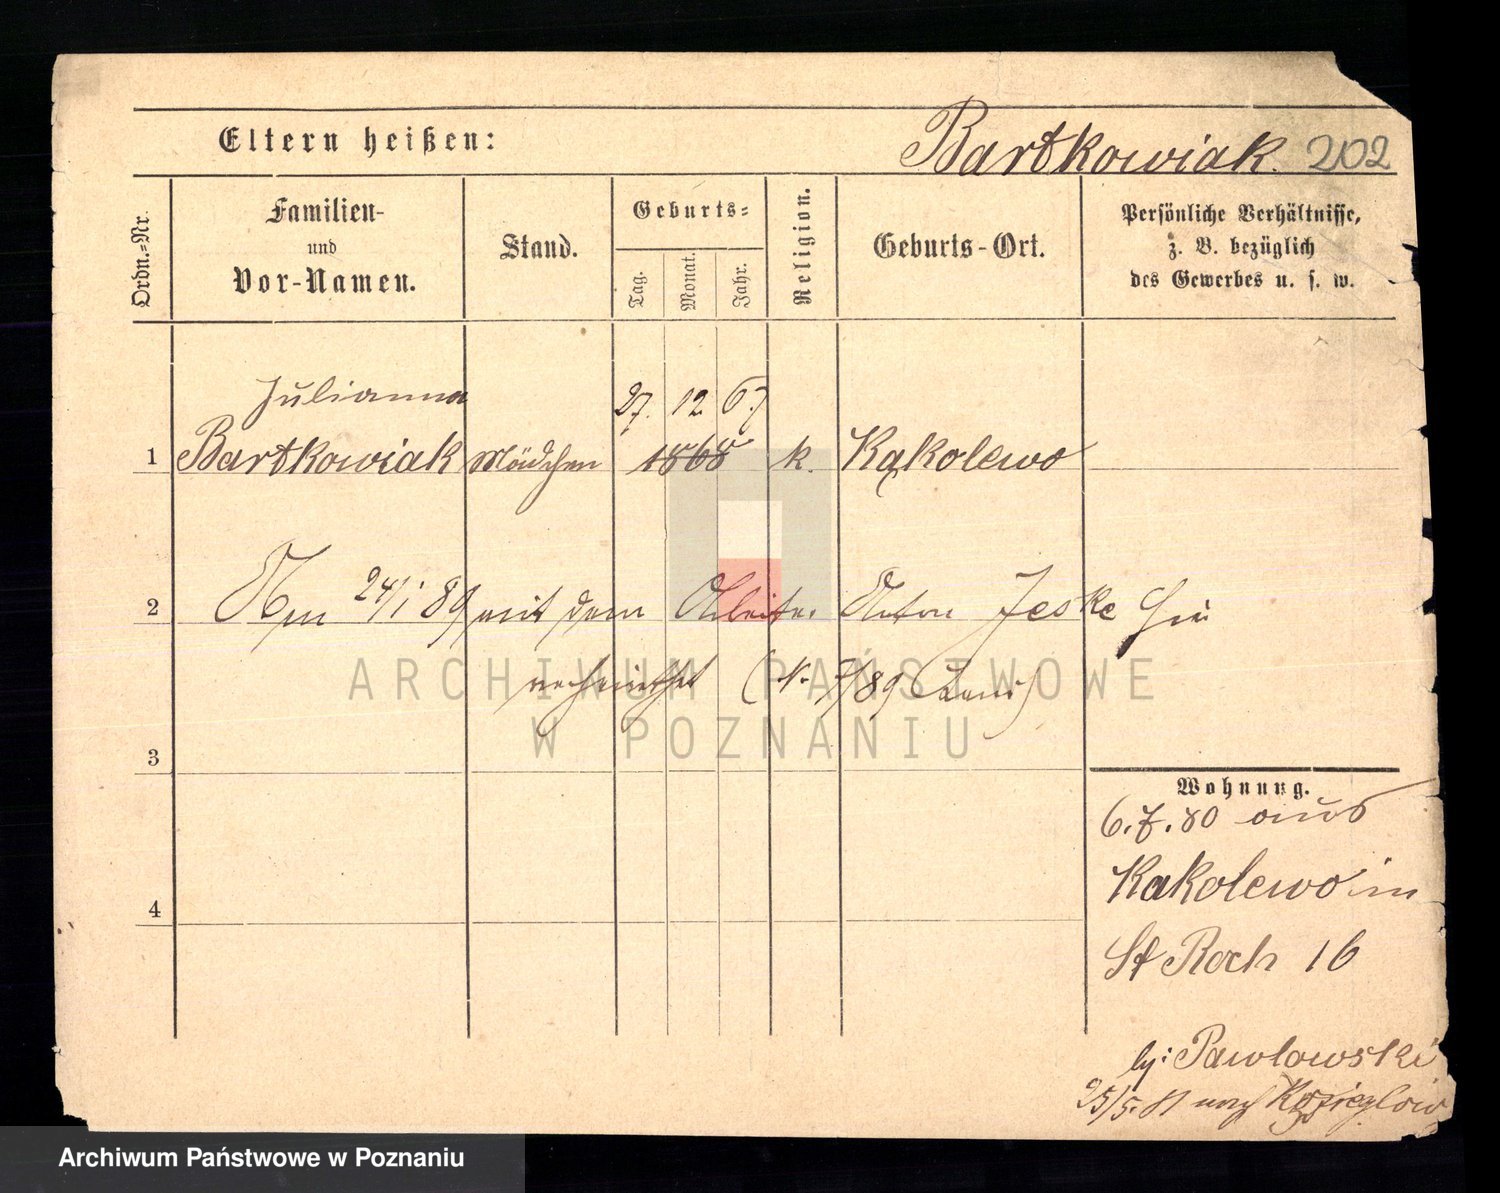 Eltern heißen:
Bartkowiak. 202
Ordn.=Nr.
Familien-
und
Vor-Namen.
Stand.
Geburts=
Tag.
Monat.
Jahr.
Religion.
Geburts-Ort.
Persönliche Verhältnisse,
z. B. bezüglich
des Gewerbes u. s. w.
Julianna 27. 12. 67
1 Bartkowiak Mädchen 1868 k. Kąkolewo
2 Am 24/1 89 mit dem Arbeiter Anton Jeske hier
verheirathet
ARCHIWUM PAŃSTWOWE
W POZNANIU
3
Wohnung.
6.7.80 aus
Kakolewo in
4
St Roch 16
by: Pawlowski
25/5. 81 nach
Archiwum Państwowe w Poznaniu